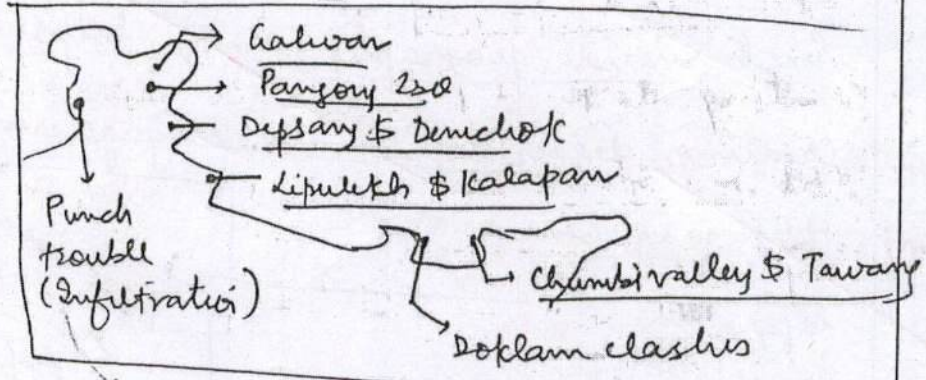 Galwan
Pangong Tso
Depsang & Demchok
Lipulekh & Kalapan
Punch
trouble
(Infiltration)
Chumbi valley & Tawang
Doklam clashes